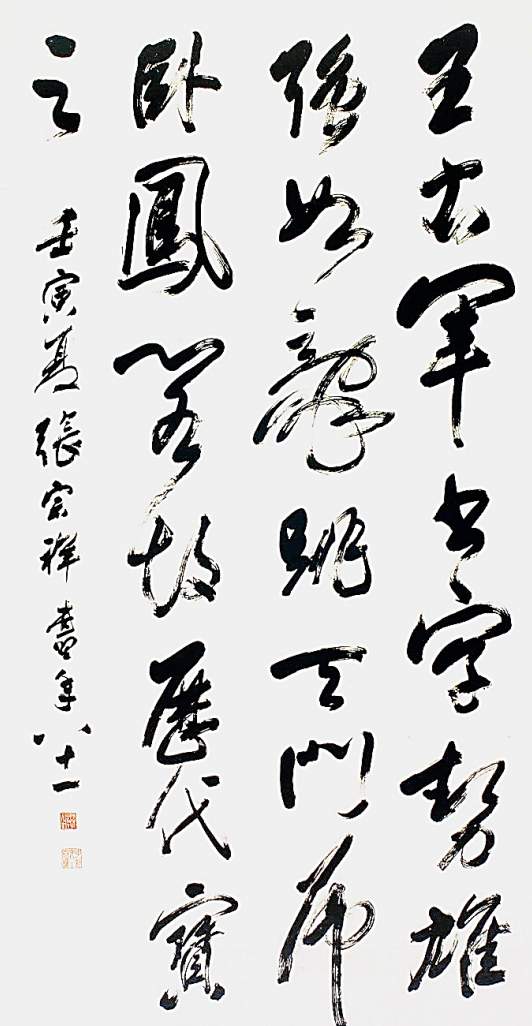 王右軍书字勢雄
強如龍跳天門虎
卧鳳閣故歷代寶
之 壬寅夏張宗祥書年八十一